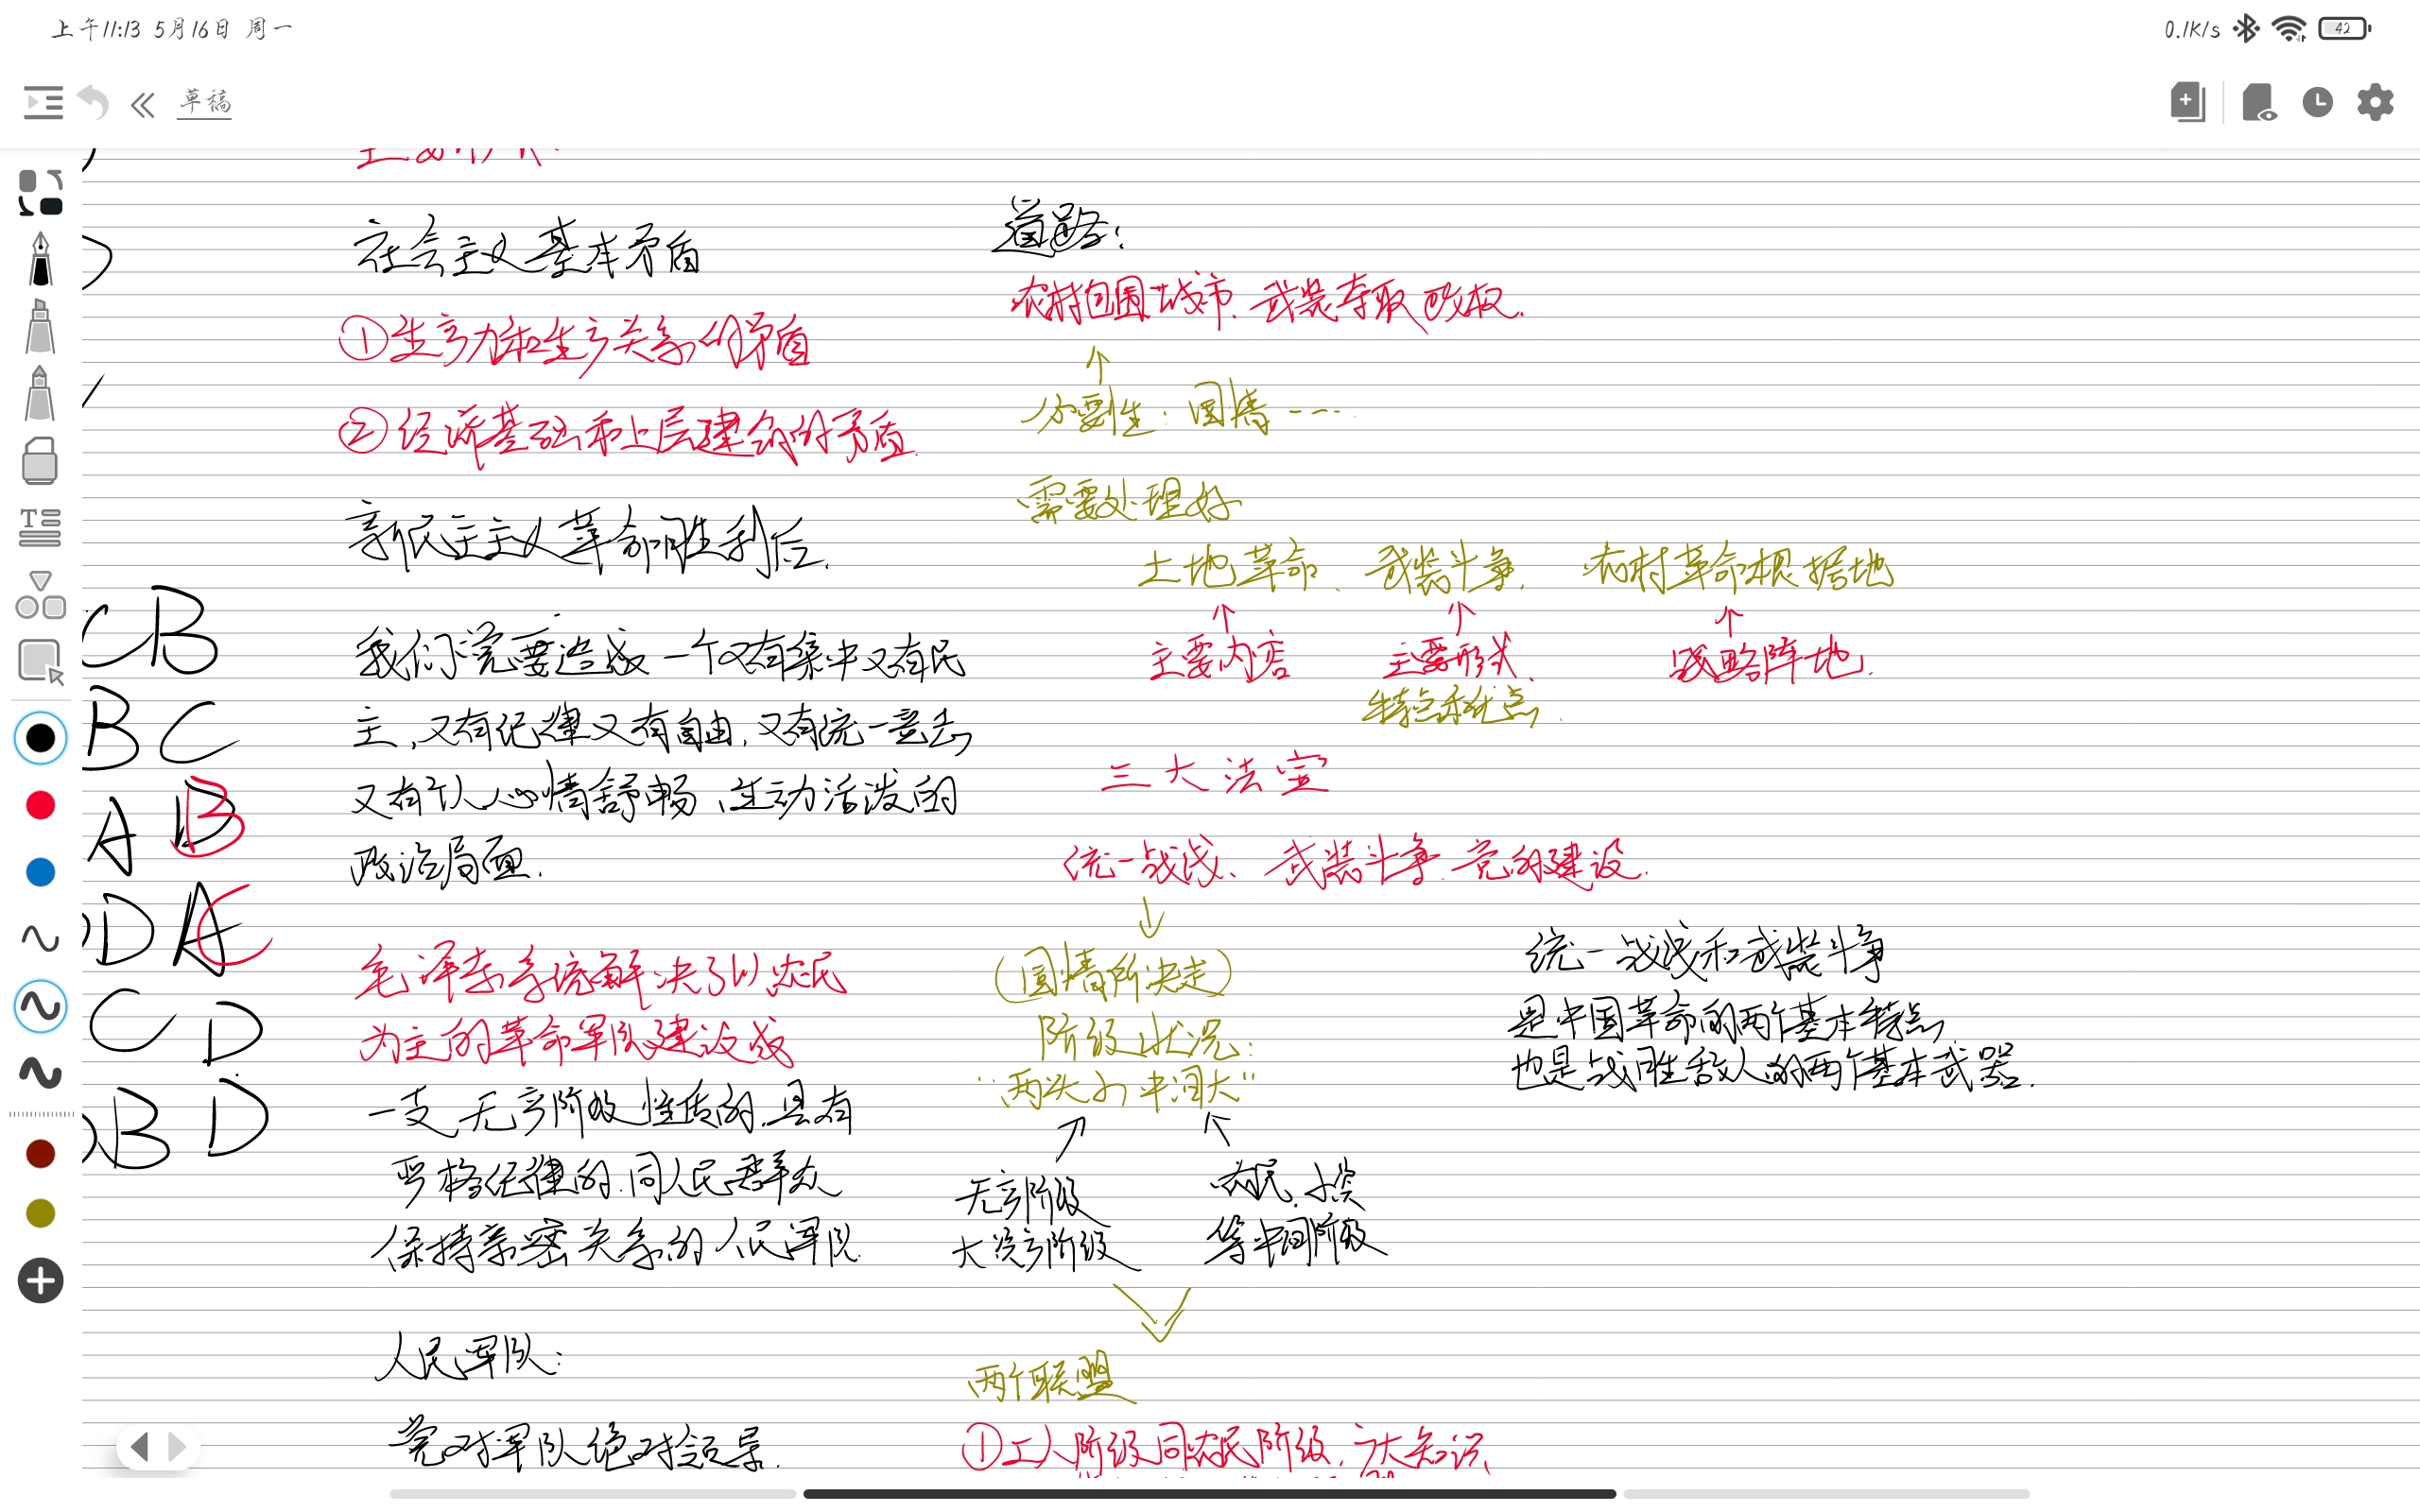 上午11:13 5月16日 周一
0.1K/s
42
草稿
社会主义基本矛盾
①生产力和生产关系的矛盾
②经济基础和上层建筑的矛盾.
新民主主义革命胜利后.
CB
我们党要造成一个又有集中又有民
BC
主,又有纪律又有自由,又有统一意志
AB
又有个人心情舒畅、生动活泼的
政治局面.
DAC
毛泽东系统解决了以农民
CD
为主的革命军队建设成
BD
一支无产阶级性质的.具有
严格纪律的.同人民群众
保持亲密关系的人民军队.
人民军队:
党对军队绝对领导.
道路:
农村包围城市.武装夺取政权.
↑
必要性:国情----
需要处理好
土地革命、武装斗争.农村革命根据地
↑ ↑ ↑
主要内容 主要形式 战略阵地.
特点和优点.
三大法宝
统一战线、武装斗争.党的建设.
↓
(国情所决定)
阶级状况:
"两头小中间大"
无产阶级
大资产阶级
农民.小资
等中间阶级
两个联盟
①工人阶级同农民阶级.广大知识
统一战线和武装斗争
是中国革命的两个基本特点,
也是战胜敌人的两个基本武器.